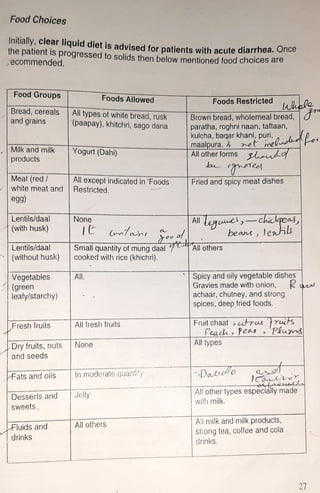 Food Choices
Initially, clear liquid diet is advised for patients with acute diarrhea. Once
the patient is progressed to solids then below mentioned food choices are
recommended.
Food Groups Foods Allowed Foods Restricted
Whole
Bread, cereals
and grains
All types of white bread, rusk
(paapay), khitchri, sago dana
Brown bread, wholemeal bread,
paratha, roghni naan, taftaan,
kulcha, baqar khani, puri,
maalpura. & not
Milk and milk
products
Yogurt (Dahi)
All other forms should
be ignored
Meat (red /
white meat and
egg)
All except indicated in 'Foods
Restricted.
Fried and spicy meat dishes
Lentils/daal
(with husk)
None
It contains a
good
All legumes, – chickpeas,
beans, lentils
Lentils/daal
(without husk)
Small quantity of mung daal
cooked with rice (khichri).
All others
Vegetables
(green
leafy/starchy)
All.
Spicy and oily vegetable dishes
Gravies made with onion, Raw
achaar, chutney, and strong
spices, deep fried foods.
Fresh fruits
All fresh fruits
Fruit chaat, citrus fruits
Peach, Pears, Plums
Dry fruits, nuts
and seeds
None
All types
Fats and oils
In moderate quantity
and
Desserts and
sweets
Jelly
All other types especially made
with milk.
Fluids and
drinks
All others
All milk and milk products,
strong tea, coffee and cola
drinks.
27